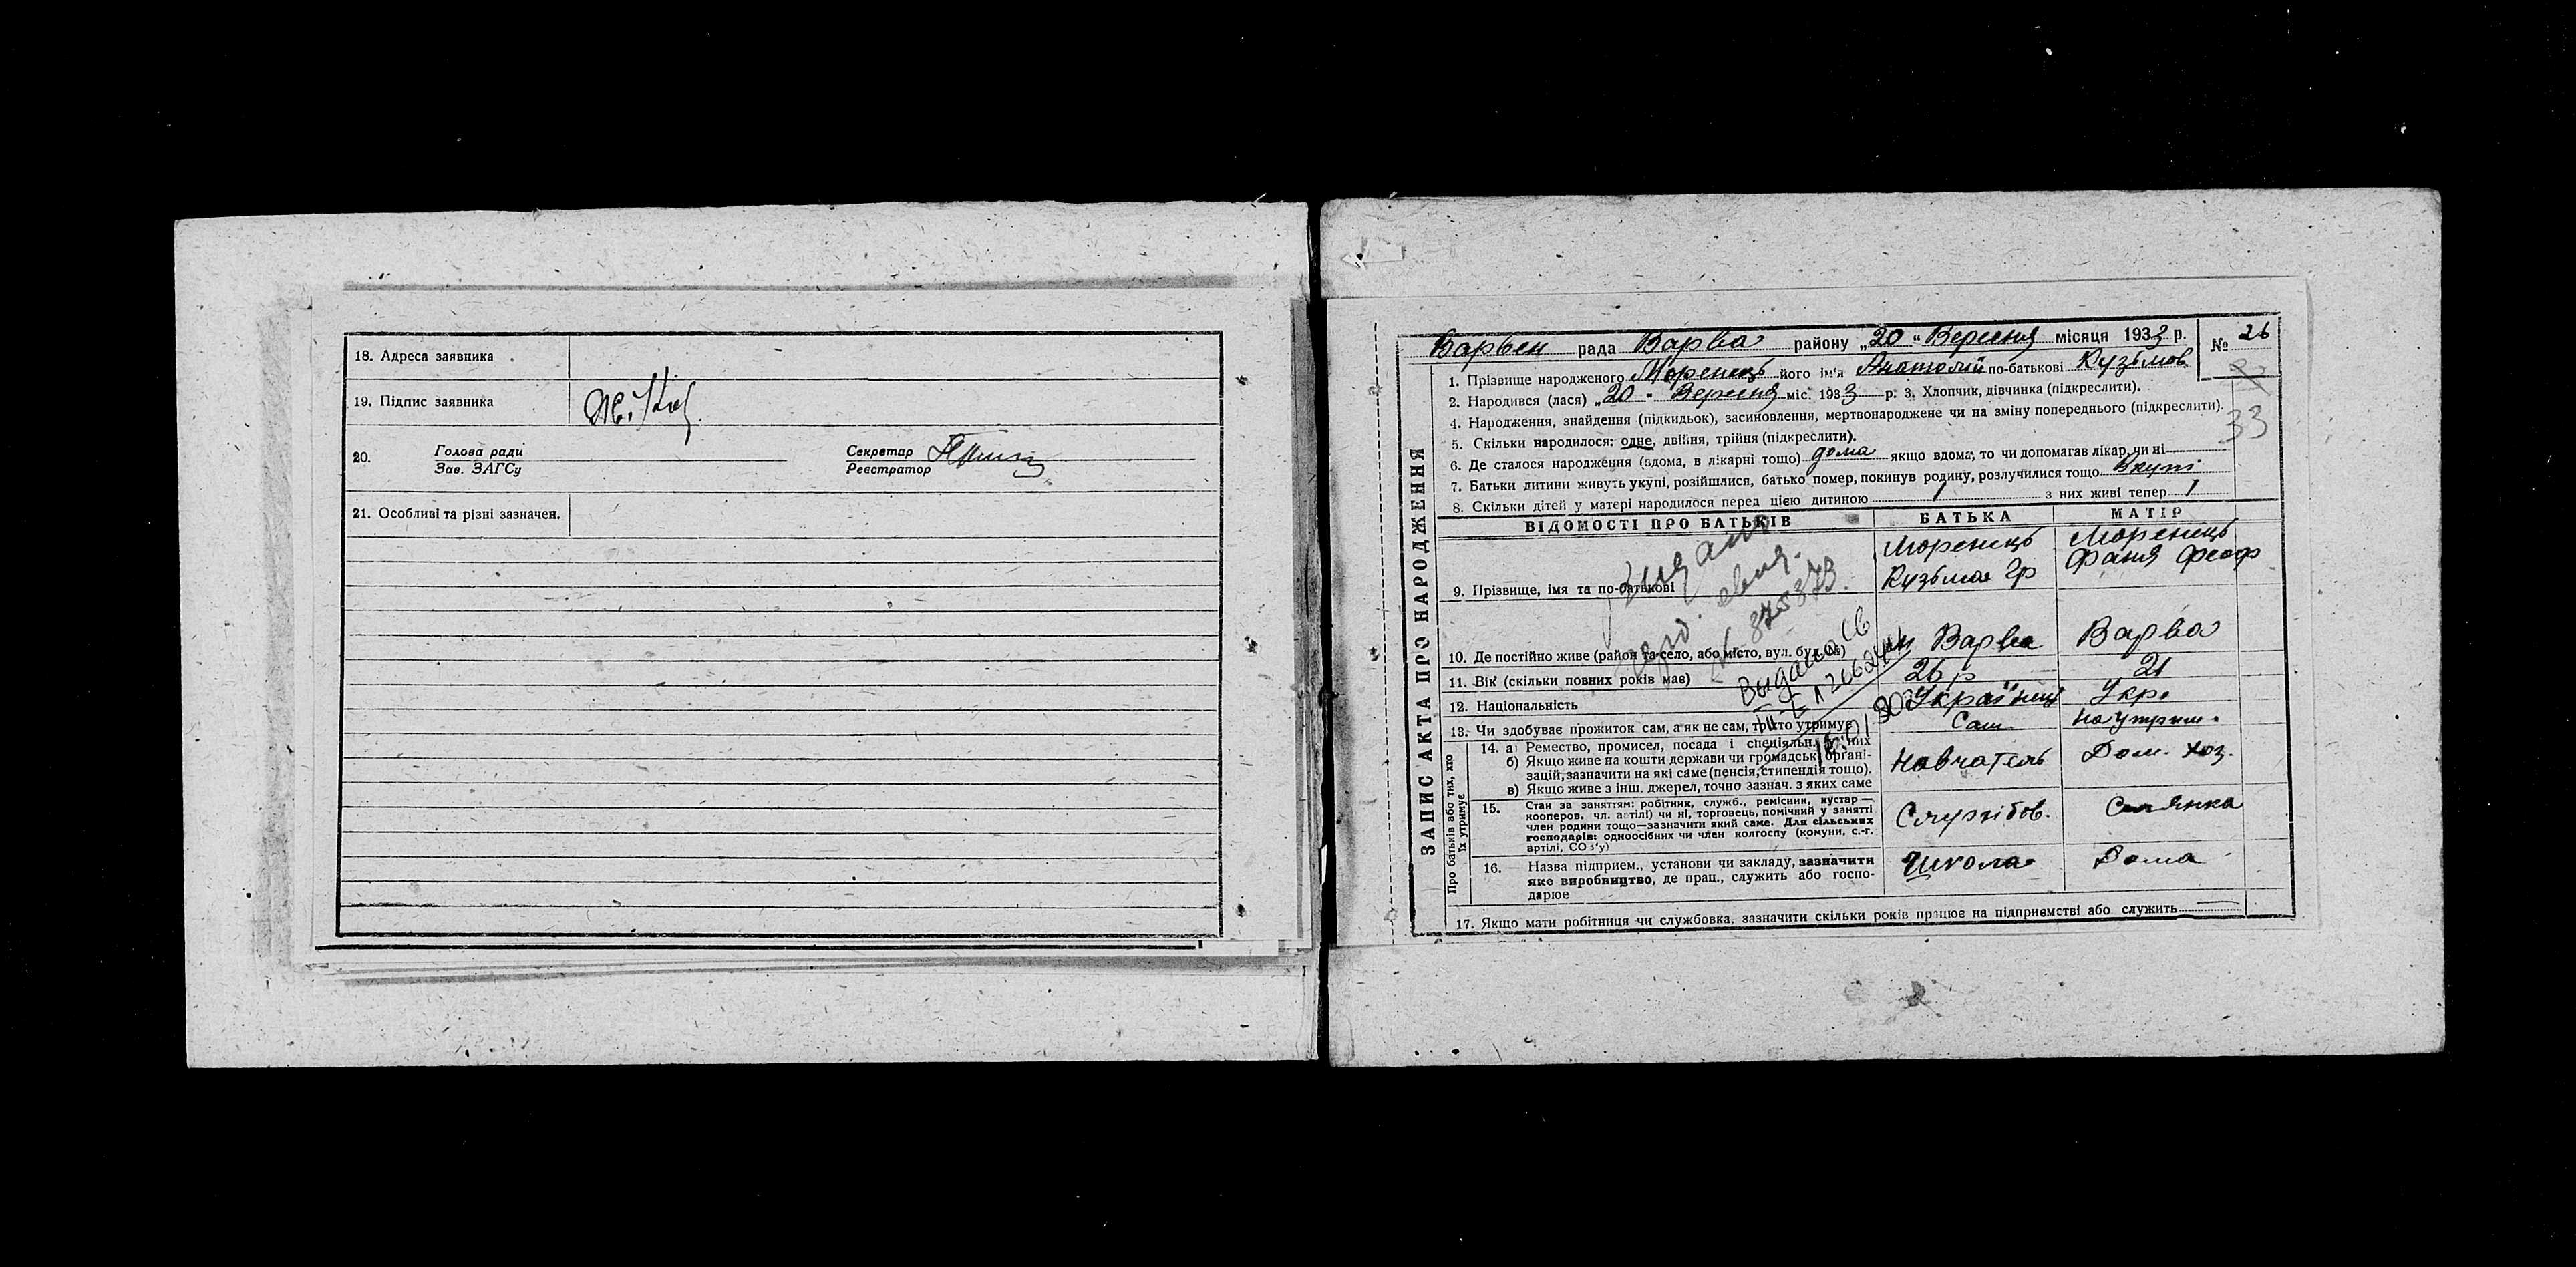 18. Адреса заявника
19. Підпис заявника
20. Голова ради
Зав. ЗАГСу
Секретар
Реєстратор
21. Особливі та різні зазначен.
ЗАПИС АКТА ПРО НАРОДЖЕННЯ
Варвен рада Варва району „20“ Вересня місяця 1933 р. № 26
33
1. Прізвище народженого Моренець його ім'я Анатолій по-батькові Кузьмов
2. Народився (лася) „20“ Вересня міс. 1933 р. 3. Хлопчик, дівчинка (підкреслити).
4. Народження, знайдення (підкидьок), засиновлення, мертвонароджене чи на зміну попереднього (підкреслити).
5. Скільки народилося: одне, двійня, трійня (підкреслити).
6. Де сталося народження (вдома, в лікарні тощо) дома якщо вдома, то чи допомагав лікар, чи ні
7. Батьки дитини живуть укупі, розійшлися, батько помер, покинув родину, розлучилися тощо Вкупі
8. Скільки дітей у матері народилося перед цією дитиною 1 з них живі тепер 1
ВІДОМОСТІ ПРО БАТЬКІВ БАТЬКА МАТІР
9. Прізвище, імя та по-батькові
Моренець Кузьма Гр
Моренець Фаня Феоф
875373
10. Де постійно живе (район та село, або місто, вул. буд. №) Варва Варва
11. Вік (скільки повних років має) 26 р 21
12. Національність Українець Укр.
13. Чи здобуває прожиток сам, а як не сам, то хто утримує Сам на утрим.
Про батьків або тих, хто їх утримує
14. а) Ремество, промисел, посада і спеціяльн. у них
б) Якщо живе на кошти держави чи громадськ. організацій, зазначити на які саме (пенсія, стипендія тощо).
в) Якщо живе з інш. джерел, точно зазнач. з яких саме
Навчатель Дом. хоз.
15. Стан за заняттям: робітник, служб., ремісник, кустар —
кооперов. чл. артілі) чи ні, торговець, помічний у занятті
член родини тощо—зазначити який саме. Для сільських
господарів: одноосібних чи член колгоспу (комуни, с.-г.
артілі, СОЗ'у)
Службов. Селянка
16. Назва підприєм., установи чи закладу, зазначити
яке виробництво, де прац., служить або господарює
Школа Дома
17. Якщо мати робітниця чи службовка, зазначити скільки років працює на підприємстві або служить